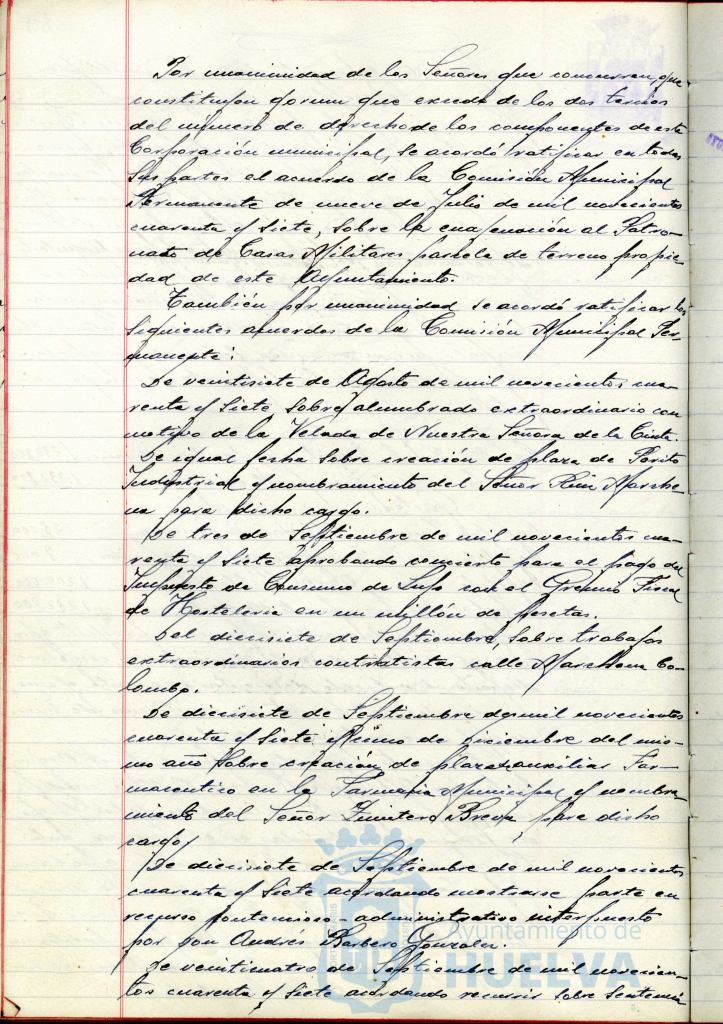 Por unanimidad de los Señores que concurren, que
constituyen qorum que excede de los dos tercios
del número de derecho de los componentes de esta
Corporación municipal, se acordó ratificar en todas
sus partes el acuerdo de la Comisión Municipal
Permanente de nueve de Julio de mil novecientos
cuarenta y siete, sobre la enajenación al Patro-
nato de Casas Militares parcela de terreno propie-
dad de este Ayuntamiento.
También por unanimidad se acordó ratificar los
siguientes acuerdos de la Comisión Municipal Per-
manente:
De veintisiete de Agosto de mil novecientos cua-
renta y siete, sobre alumbrado extraordinario con
motivo de la Velada de Nuestra Señora de la Cinta.
De igual fecha sobre creación de plaza de Perito
Industrial y nombramiento del Señor Ruiz Marche-
na para dicho cargo.
De tres de Septiembre de mil novecientos cua-
renta y siete aprobando concierto para el pago del
Impuesto de Consumo de Lujo con el Gremio Fiscal
de Hosteleria en un millón de pesetas.
Del diecisiete de Septiembre, sobre trabajos
extraordinarios contratistas calle Marchena Co-
lombo.
De diecisiete de Septiembre de mil novecientos
cuarenta y siete y de diciembre del mis-
mo año sobre creación de plaza auxiliar Far-
maceutico en la Farmacia Municipal y nombra-
miento del Señor Breva para dicho
cargo.
De diecisiete de Septiembre de mil novecientos
cuarenta y siete acordando mostrarse parte en
recurso contencioso-administrativo interpuesto
por Don Andrés Barbero Gonzalez.
De veinticuatro de Septiembre de mil novecien-
tos cuarenta y siete acordando recurrir sobre Sentencia
Ayuntamiento de
HUELVA